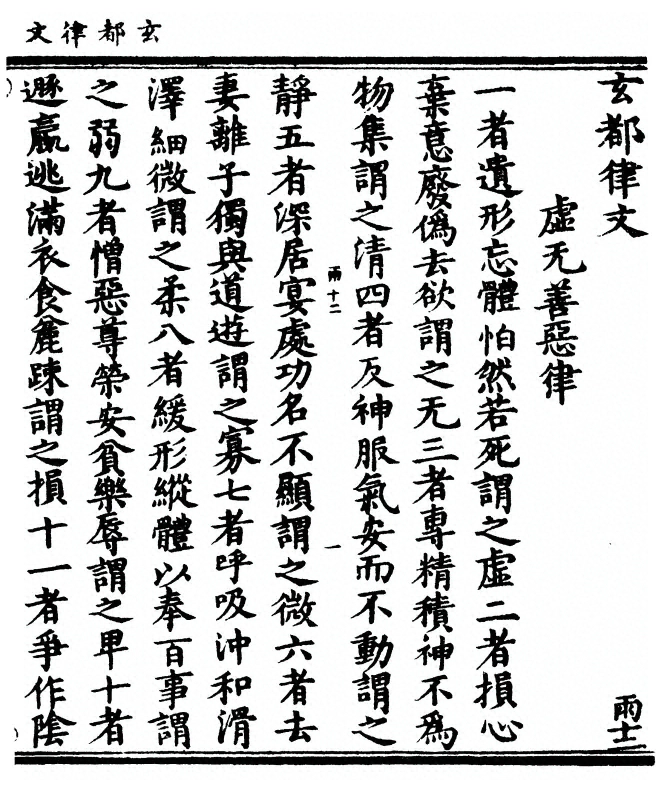 玄都律文
玄都律文
雨十二
虛无善惡律
一者遺形忘體怕然若死謂之虛二者損心
棄意廢僞去欲謂之无三者專精積神不爲
物集謂之清四者反神服氣安而不動謂之
雨十二
一
靜五者深居宴處功名不顯謂之微六者去
妻離子獨與道遊謂之寡七者呼吸沖和滑
澤細微謂之柔八者緩形縱體以奉百事謂
之弱九者憎惡尊榮安貧樂辱謂之卑十者
遯羸逃滿衣食麄踈謂之損十一者爭作陰